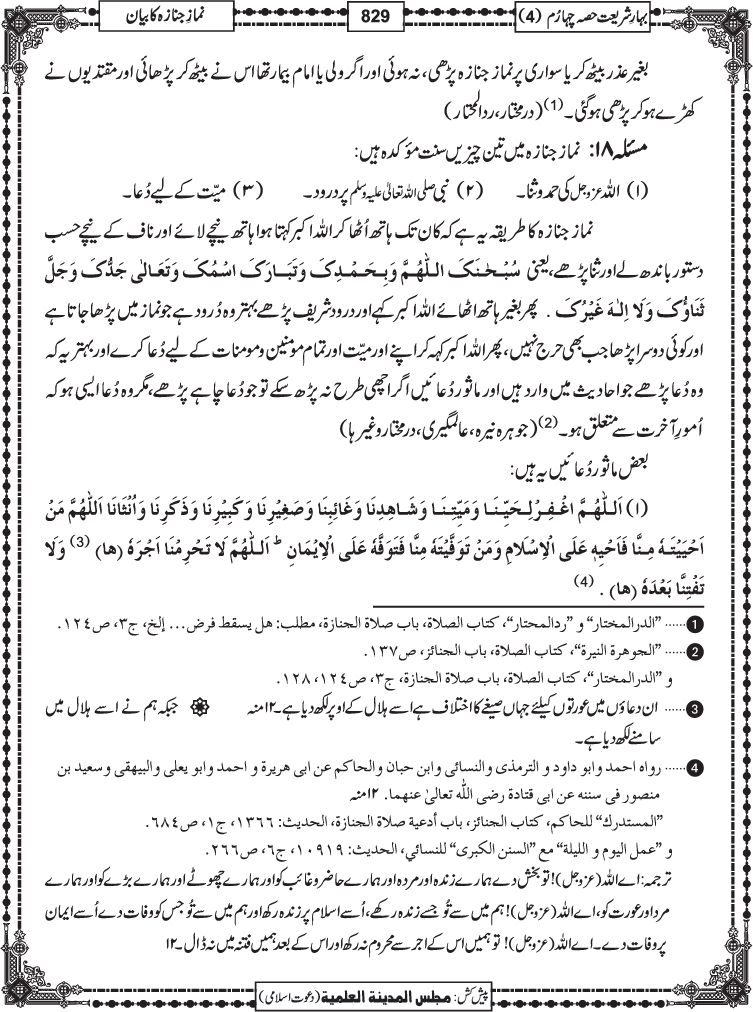 بہارِشریعت حصہ چہارم (4)
829
نمازِ جنازہ کا بیان
بغیر عذر بیٹھ کر یا سواری پر نماز جنازہ پڑھی، نہ ہوئی اور اگر ولی یا امام بیمار تھا اس نے بیٹھ کر پڑھائی اور مقتدیوں نے
کھڑے ہو کر پڑھی ہوگئی۔(1) (درمختار، ردالمحتار)
مسئلہ ۱۸: نماز جنازہ میں تین چیزیں سنت مؤکدہ ہیں:
(۱) اللہ عزوجل کی حمد و ثنا۔ (۲) نبی صلی اللہ تعالیٰ علیہ وسلم پر درود۔ (۳) میّت کے لیے دُعا۔
نماز جنازہ کا طریقہ یہ ہے کہ کان تک ہاتھ اُٹھا کر اللہ اکبر کہتا ہوا ہاتھ نیچے لائے اور ناف کے نیچے حسب
دستور باندھ لے اور ثنا پڑھے، یعنی سُبْحٰنَکَ اللّٰھُمَّ وَبِحَمْدِکَ وَتَبَارَکَ اسْمُکَ وَتَعَالٰی جَدُّکَ وَجَلَّ
ثَنَاؤُکَ وَلَا اِلٰہَ غَیْرُکَ . پھر بغیر ہاتھ اٹھائے اللہ اکبر کہے اور درود شریف پڑھے بہتر وہ دُرود ہے جو نماز میں پڑھا جاتا ہے
اور کوئی دوسرا پڑھا جب بھی حرج نہیں، پھر اللہ اکبر کہہ کر اپنے اور میّت اور تمام مومنین و مومنات کے لیے دُعا کرے اور بہتر یہ کہ
وہ دُعا پڑھے جو احادیث میں وارد ہیں اور ماثور دُعائیں اگر اچھی طرح نہ پڑھ سکے تو جو دُعا چاہے پڑھے، مگر وہ دُعا ایسی ہو کہ
اُمورِ آخرت سے متعلق ہو۔(2) (جوہرہ نیرہ، عالمگیری، درمختار وغیرہا)
بعض ماثور دُعائیں یہ ہیں:
(۱) اَللّٰھُمَّ اغْفِرْلِحَیِّنَا وَمَیِّتِنَا وَشَاھِدِنَا وَغَائِبِنَا وَصَغِیْرِنَا وَکَبِیْرِنَا وَذَکَرِنَا وَاُنْثَانَا اَللّٰھُمَّ مَنْ
اَحْیَیْتَہٗ مِنَّا فَاَحْیِہٖ عَلَی الْاِسْلَامِ وَمَنْ تَوَفَّیْتَہٗ مِنَّا فَتَوَفَّہٗ عَلَی الْاِیْمَانِ ط اَللّٰھُمَّ لَا تَحْرِمْنَا اَجْرَہٗ (ھا) (3) وَلَا
تَفْتِنَّا بَعْدَہٗ (ھا) . (4)
1 ...... "الدرالمختار" و "ردالمحتار"، کتاب الصلاۃ، باب صلاۃ الجنازۃ، مطلب: ھل یسقط فرض... إلخ، ج۳، ص۱۲٤.
2 ...... "الجوھرۃ النیرۃ"، کتاب الصلاۃ، باب الجنائز، ص۱۳۷.
و "الدرالمختار"، کتاب الصلاۃ، باب صلاۃ الجنازۃ، ج۳، ص۱۲٤، ۱۲۸.
3 ...... ان دعاؤں میں عورتوں کیلئے جہاں صیغے کا اختلاف ہے اسے ہلال کے اوپر لکھ دیا ہے۔ ۱۲ منہ جبکہ ہم نے اسے ہلال میں
سامنے لکھ دیا ہے۔
4 ...... رواہ احمد وابو داود و الترمذی والنسائی وابن حبان والحاکم عن ابی ھریرۃ و احمد وابو یعلی والبیھقی وسعید بن
منصور فی سننہ عن ابی قتادۃ رضی اللّٰہ تعالیٰ عنھما. ۱۲ منہ
"المستدرک" للحاکم، کتاب الجنائز، باب أدعیۃ صلاۃ الجنازۃ، الحدیث: ۱۳٦٦، ج۱، ص٦۸٤.
و "عمل الیوم و اللیلۃ" مع "السنن الکبری" للنسائي، الحدیث: ۱۰۹۱۹، ج٦، ص۲٦٦.
ترجمہ: اے اللہ (عزوجل)! تو بخش دے ہمارے زندہ اور مردہ اور ہمارے حاضر و غائب کو اور ہمارے چھوٹے اور ہمارے بڑے کو اور ہمارے
مرد اور عورت کو، اے اللہ (عزوجل)! ہم میں سے تُو جسے زندہ رکھے، اُسے اسلام پر زندہ رکھ اور ہم میں سے تُو جس کو وفات دے اُسے ایمان
پر وفات دے۔ اے اللہ (عزوجل)! تو ہمیں اس کے اجر سے محروم نہ رکھ اور اس کے بعد ہمیں فتنہ میں نہ ڈال۔ ۱۲
پیش کش: مجلس المدینۃ العلمیۃ (دعوت اسلامی)